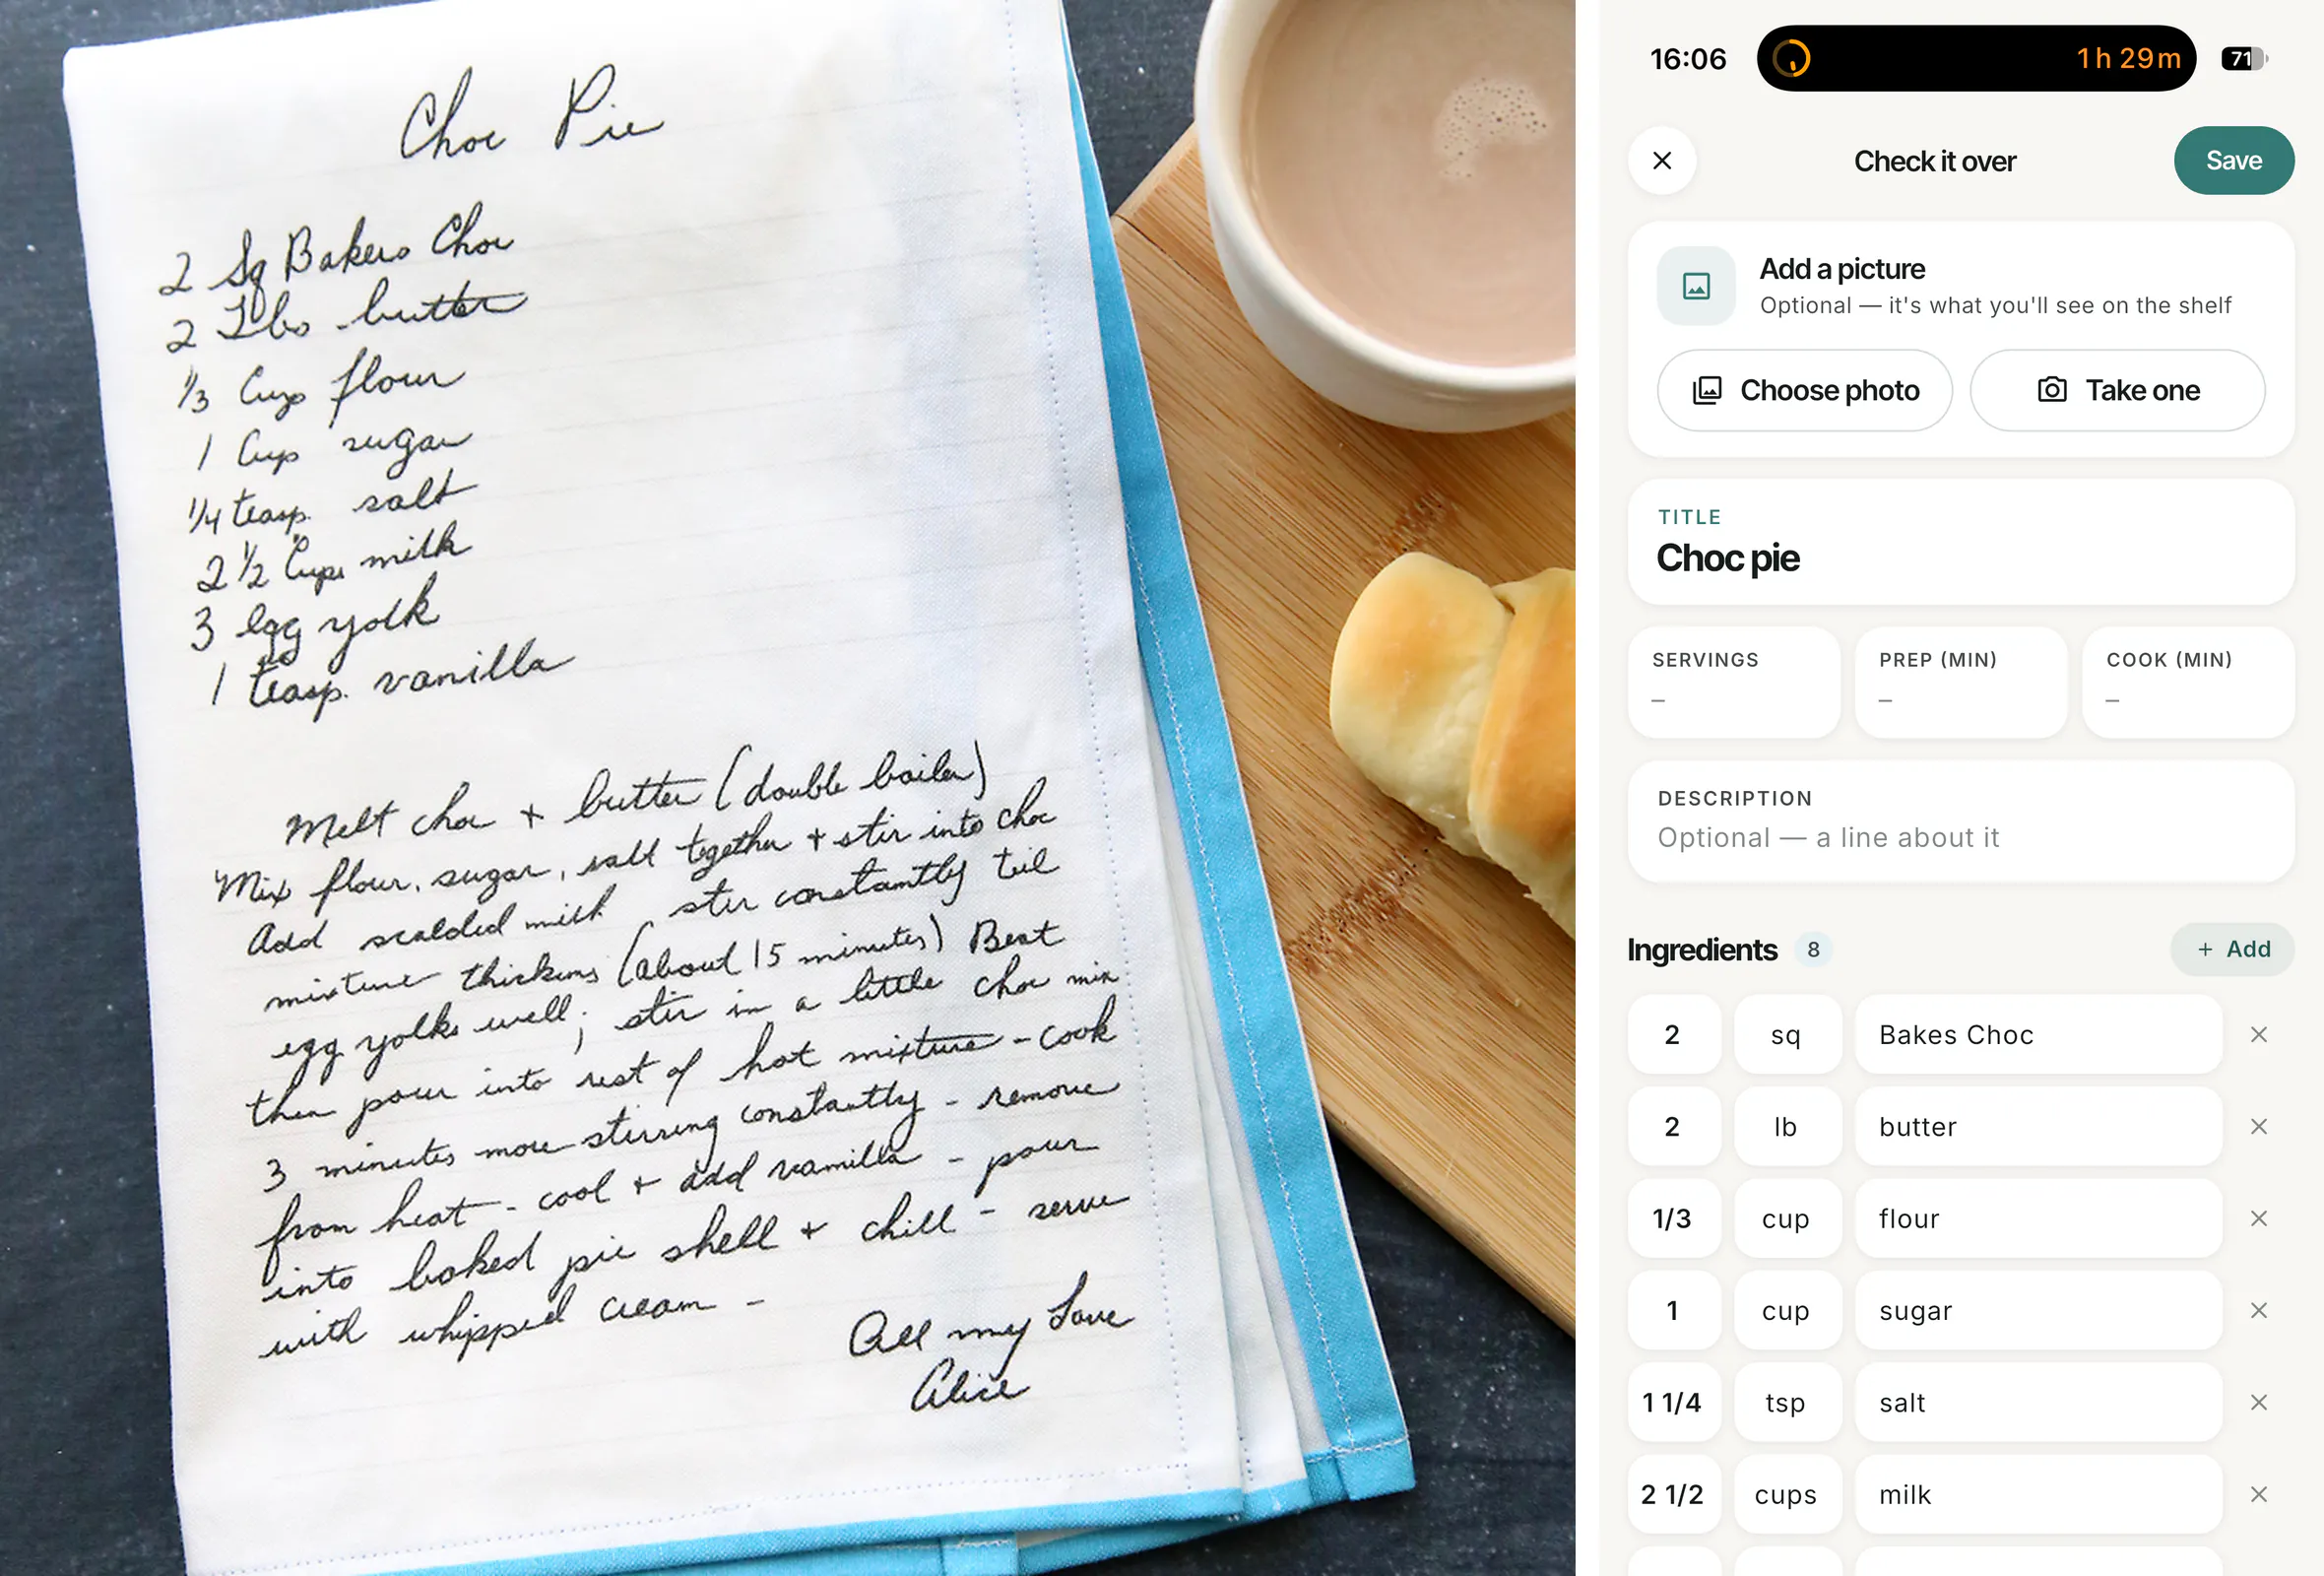 Choc Pie
2 Sq Bakers Choc
2 Tbs butter
1/3 Cup flour
1 Cup sugar
1/4 teasp. salt
2 1/2 Cups milk
3 egg yolk
1 teasp. vanilla
Melt choc + butter (double boiler)
Mix flour, sugar, salt together + stir into choc
Add scalded milk stir constantly til
mixture thickens (about 15 minutes) Beat
egg yolks well; stir in a little choc mix
then pour into rest of hot mixture - cook
3 minutes more stirring constantly - remove
from heat - cool + add vanilla - pour
into baked pie shell + chill - serve
with whipped cream -
All my Love
Alice
16:06 1 h 29 m 71
Check it over Save
Add a picture
Optional — it's what you'll see on the shelf
Choose photo Take one
TITLE
Choc pie
SERVINGS PREP (MIN) COOK (MIN)
– – –
DESCRIPTION
Optional — a line about it
Ingredients 8 + Add
2 sq Bakes Choc
2 lb butter
1/3 cup flour
1 cup sugar
1 1/4 tsp salt
2 1/2 cups milk